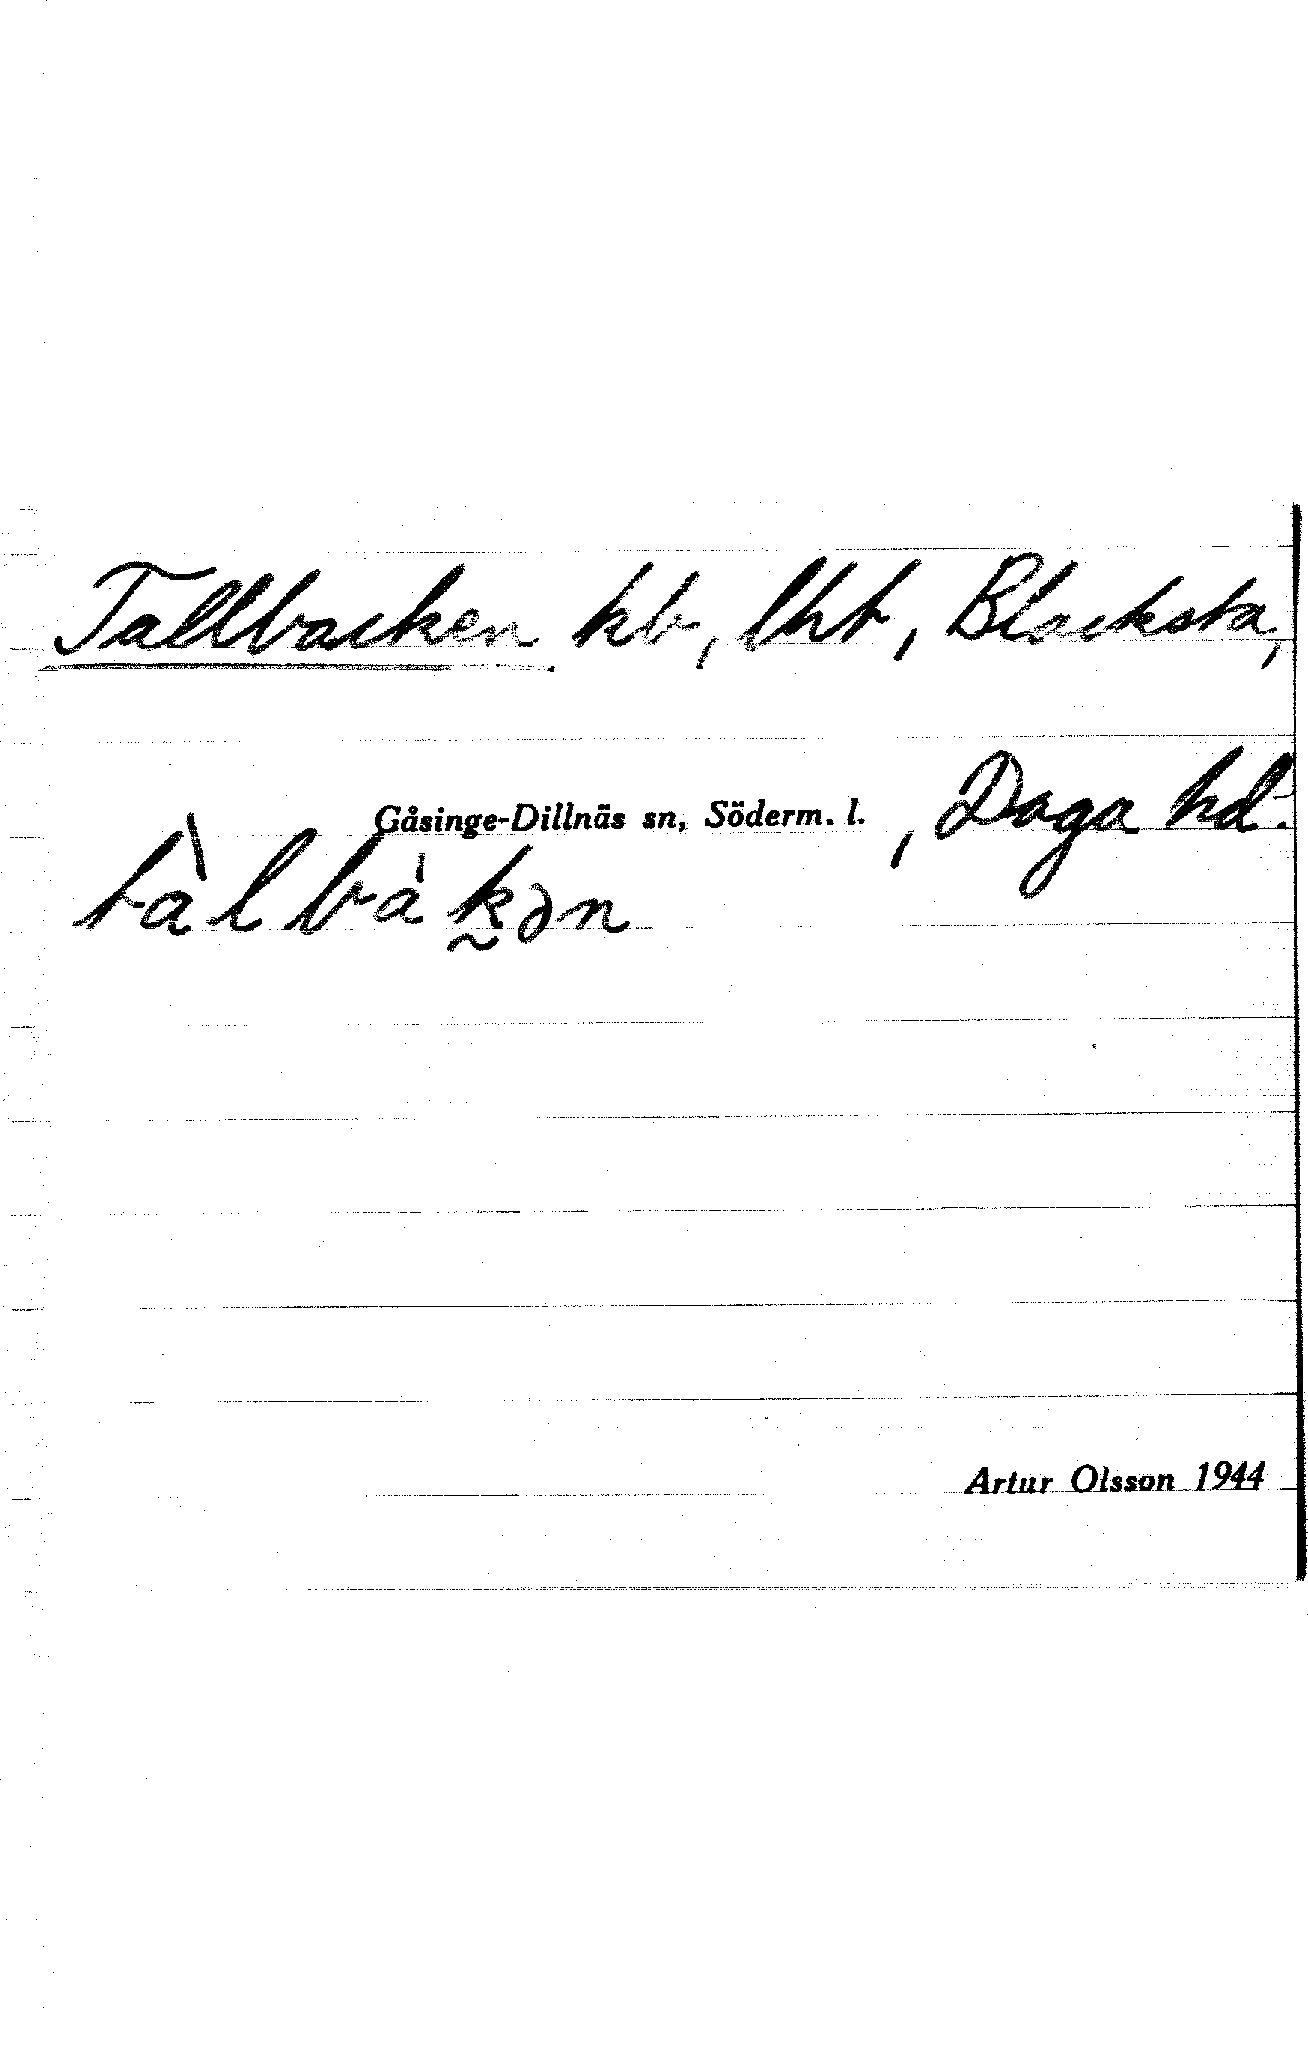 Tallbacken kb, lht, Blacksta,
Gåsinge-Dillnäs sn, Söderm. l. , Daga hd.
tàlbàk̰ən
Artur Olsson 1944